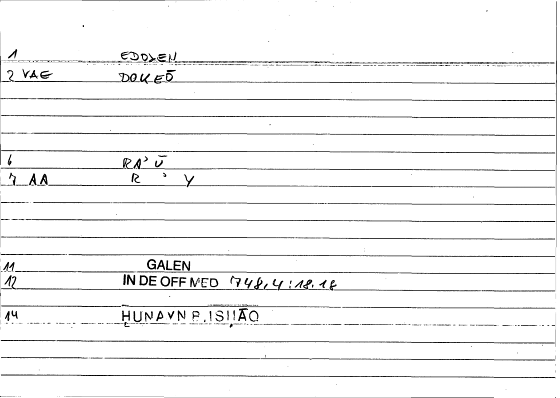 1 EDOSEN
2 VAE DOKEŌ
6 RA' Ū
7 AA R ' Y
11 GALEN
12 IN DE OFF MED 748,4:18.18
14 ḤUNAYN B.ISḤĀQ